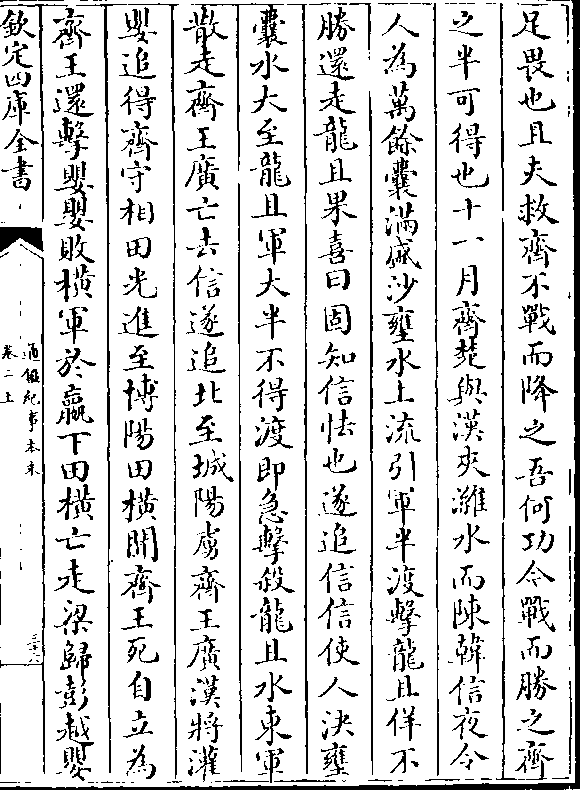 足畏也且夫救齊不戰而降之吾何功今戰而勝之齊
之半可得也十一月齊楚與漢夾濰水而陳韓信夜令
人為萬餘囊滿盛沙壅水上流引軍半渡擊龍且佯不
勝還走龍且果喜曰固知信怯也遂追信信使人決壅
囊水大至龍且軍大半不得渡即急擊殺龍且水東軍
散走齊王廣亡去信遂追北至城陽虜齊王廣漢將灌
嬰追得齊守相田光進至博陽田橫聞齊王死自立為
齊王還擊嬰嬰敗橫軍於嬴下田橫亡走梁歸彭越嬰
欽定四庫全書
通鑑紀事本末
卷二上